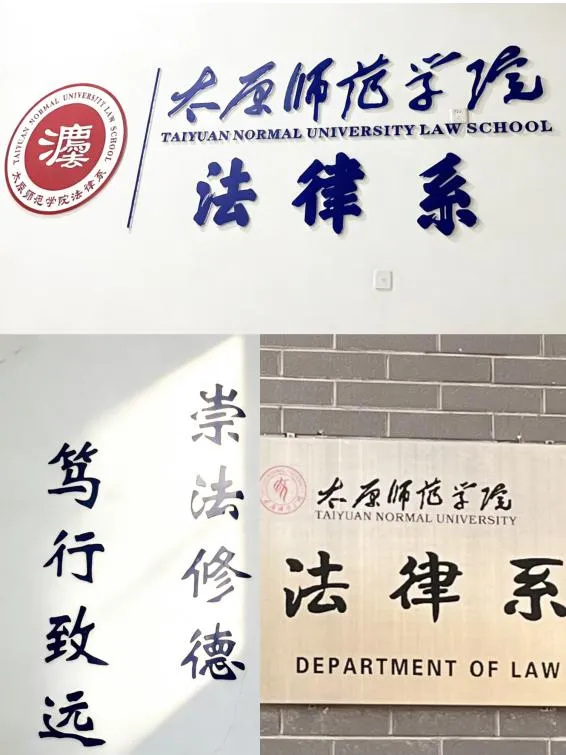 TAIYUAN NORMAL UNIVERSITY LAW SCHOOL
灋
太原师范学院法律系
太原师范学院
TAIYUAN NORMAL UNIVERSITY LAW SCHOOL
法律系
崇法修德
笃行致远
太原师范学院
TAIYUAN NORMAL UNIVERSITY
法律系
DEPARTMENT OF LAW